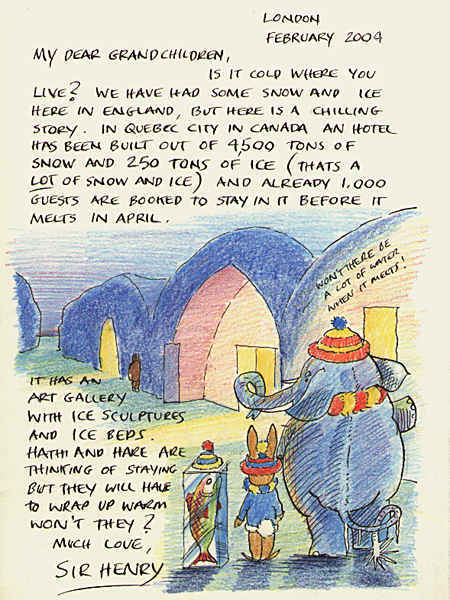 LONDON
FEBRUARY 2004
MY DEAR GRANDCHILDREN,
IS IT COLD WHERE YOU
LIVE? WE HAVE HAD SOME SNOW AND ICE
HERE IN ENGLAND, BUT HERE IS A CHILLING
STORY. IN QUEBEC CITY IN CANADA AN HOTEL
HAS BEEN BUILT OUT OF 4,500 TONS OF
SNOW AND 250 TONS OF ICE (THATS A
LOT OF SNOW AND ICE) AND ALREADY 1,000
GUESTS ARE BOOKED TO STAY IN IT BEFORE IT
MELTS IN APRIL.
WON'T THERE BE
A LOT OF WATER
WHEN IT MELTS!
IT HAS AN
ART GALLERY
WITH ICE SCULPTURES
AND ICE BEDS.
HATHI AND HARE ARE
THINKING OF STAYING
BUT THEY WILL HAVE
TO WRAP UP WARM
WON'T THEY?
MUCH LOVE,
SIR HENRY